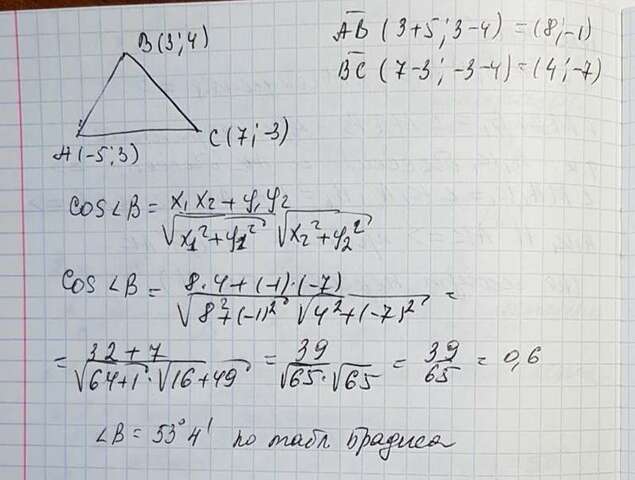 B(3;4)
A(-5;3)
C(7;-3)
AB (3+5; 3-4) = (8;-1)
BC (7-3; -3-4) = (4;-7)
cos∠B = x₁x₂+y₁y₂ / √x₁²+y₁² √x₂²+y₂²
cos∠B = 8·4+(-1)·(-7) / √8²+(-1)² √4²+(-7)² =
= 32+7 / √64+1·√16+49 = 39 / √65·√65 = 39/65 = 0,6
∠B = 53°4' по табл. Брадиса